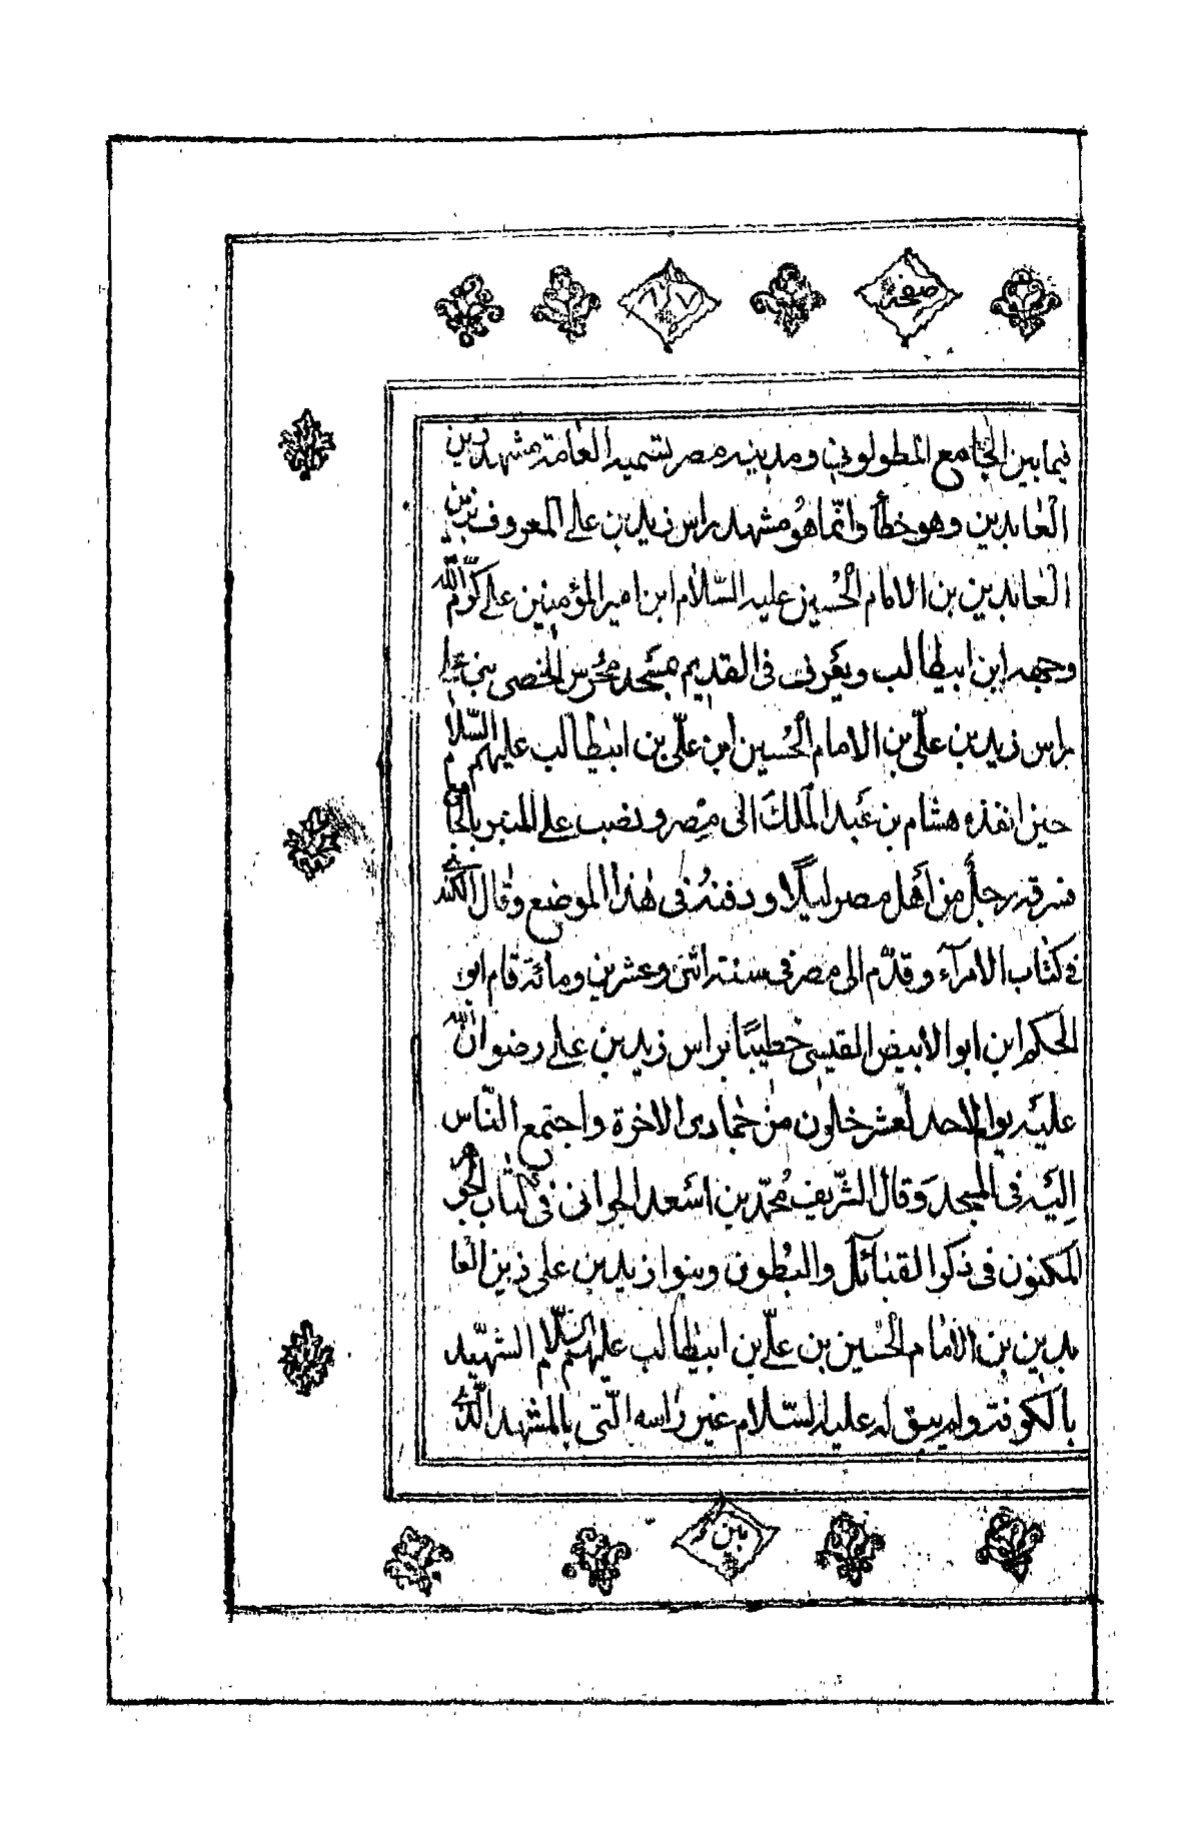 صفحة
٦٧
فيما بين الجامع الطولوني ومدينه مصر تسميه العامة مشهد زين
العابدين وهو خطأ وانّما هو مشهد راس زيد بن علي المعروف بزين
العابدين بن الامام الحُسين عليه السّلام ابن امير المؤمنين علي كرّم الله
وجهه ابن ابيطالب ويعرف فى القديم بمسَجد محُرس الخصى بنى على
راس زيد بن علّى بن الامام الحُسين ابن علّى بن ابيطالب عليهم السّلام
حين انفذه هشام بن عَبد الملكَ الى مِصر ونصب على المنبر بالجامع
فسرقه رجلٌ من اَهل مصر ليلًا ودفنهُ فى هٰذا الموضع وقال الكندى
فى كتٰاب الامرآء وقدّم الى مصر فى سنة اثنى وعشرين ومائة قام ابو
الحكم ابن ابو الابيض القيسى خطيبًا براس زيد بن على رضوان الله
عليَه يوام الاحد لعشر خلون من جُمادى الاخرة واجتمع النّاس
اِليَه فى المسجد وَقال الشّريف مُحمّد بن اسَعد الجوانى فى كتٰاب الجوهر
المكنون فى ذكر القبآئل والبُطون وبنوا زيد بن على زين العا
بدين بن الامٰام الحُسين بن علّى بن ابيطٰالب عليهم السّلام الشهيّد
بالكوفة ولم يبق له عليه السّلام غير رٰاسه الّتى بالمشهد الّذى
بين